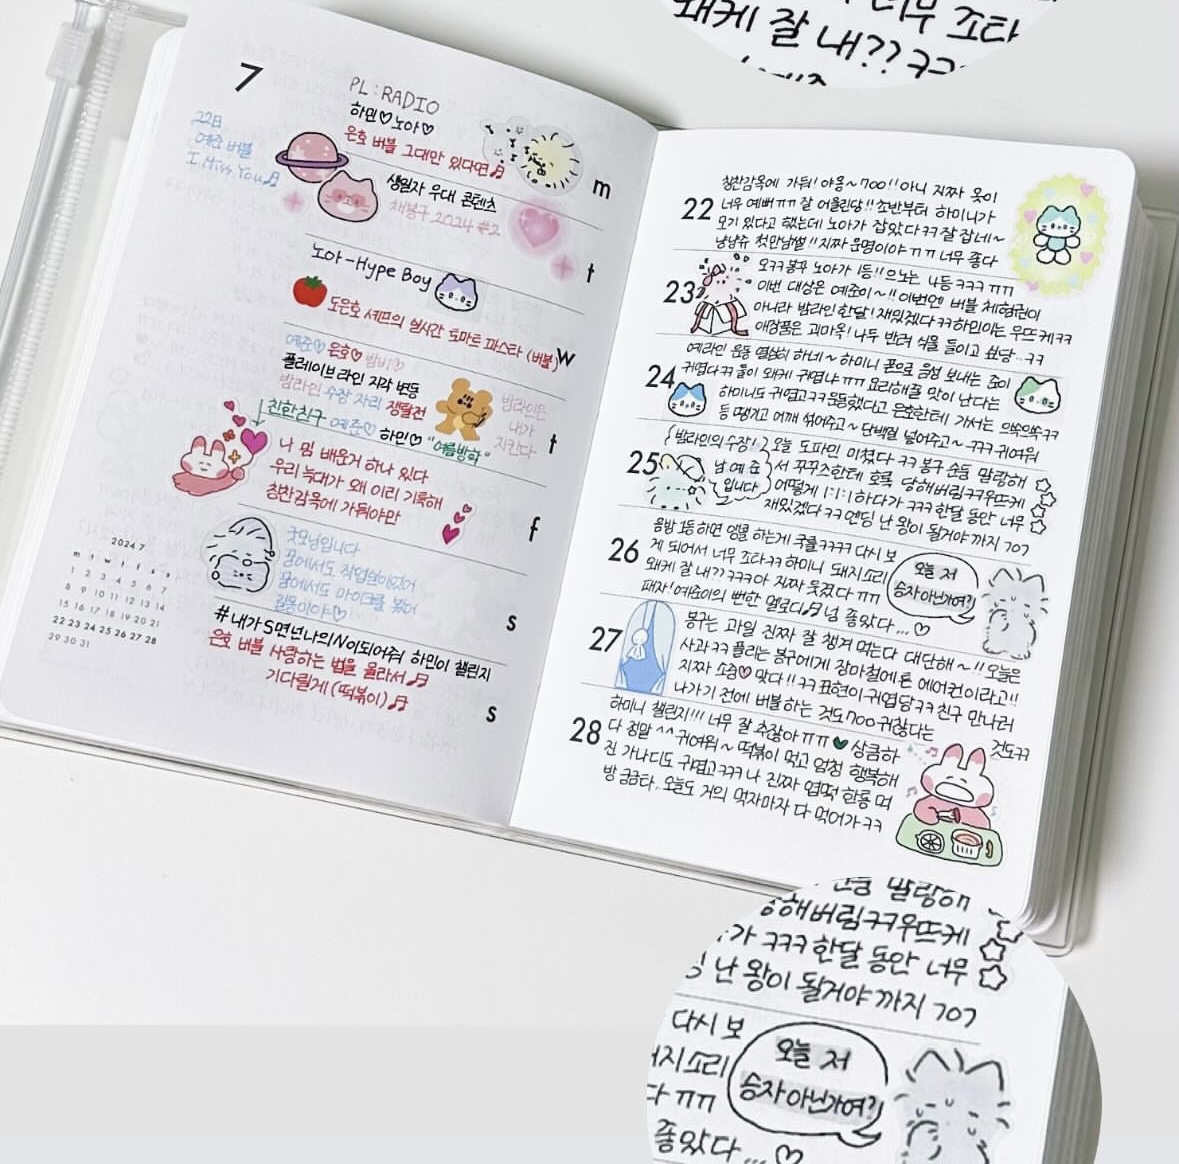 왜케 잘 내?? ㅋㅋ
7
PL:RADIO
하민♡노아♡
은호 버블 그대만 있다면♬
22일
예준 버블
I Miss You♬
m
생일자 우대 콘텐츠
재봉구 2024 #2
t
노아-Hype Boy
도은호 셰프의 실시간 토마토 파스타 (버블)
w
예준♡ 은호♡ 밤비♡
플레이브 라인 지각 변동
밤라인 수장 자리 쟁탈전
밤라인은
내가
지킨다
친한친구 예준♡ 하민♡ "여름방학"
t
나 뭐 배운거 하나 있다
우리 늑대가 왜 이리 기특해
칭찬감옥에 가둬야만
f
굿모닝입니다
꿈에서도 작업실이었어
꿈에서도 마이크를 봤어
길몽이야♡
s
#내가S면넌나의N이되어줘 하민이 챌린지
은호 버블 사랑하는 법을 몰라서♬
기다릴게(떡볶이)♬
s
2024 7
m t w t f s s
1 2 3 4 5 6 7
8 9 10 11 12 13 14
15 16 17 18 19 20 21
22 23 24 25 26 27 28
29 30 31
22
칭찬감옥에 가둬! 야옹~ 700!! 아니 지짜 옷이
너무 예뻐ㅠㅠ 잘 어울린당!! 초반부터 하미니가
모기 있다고 했는데 노아가 잡았다ㅋㅋ 잘 잡네~
냥냥슈 첫만남썰!! 지짜 운명이야ㅠㅠ 너무 좋다
23
오ㅋㅋ봉꾸 노아가 1등!! 으노는 나등ㅋㅋㅋㅠㅠ
이번 대상은 예준이~!! 이번엔 버블 체험권이
아니라 밤라인 한달! 재밌겠다ㅋㅋ하민이는 우뜨케ㅋㅋ
애정품은 괴마옥! 나두 반려 식물 들이고 쇼당..ㅋㅋ
24
예라인 운동 열심히 하네~ 하미니 폰으로 음성 보내는 쥬이
귀엽다ㅋㅋ 둘이 왜케 귀엽냐ㅠㅠ 요리해줄 맛이 난다는
하미니도 귀엽고ㅋㅋ운동했다고 은호한테 가서는 으쓱으쓱ㅋㅋ
등 떵기고 어깨 섞어주고~ 단백질 넣어주고~ ㅋㅋㅋ 귀여워
25
밤라인의 수장!
남 예 준
입니다
오늘 도파민 미쳤다 ㅋㅋ 봉구 손등 말랑해
서 꾸꾸즈한테 호록 당해버림ㅋㅋ우뜨케
어떻게 1:1:1 하다가 ㅋㅋㅋ 한달 동안 너무
재밌겠다 ㅋㅋ 엔딩 난 왕이 될거야 까지 707
26
음방 1등하면 앵콜 하는게 국룰ㅋㅋㅋㅋ 다시 보
게 되어서 너무 조타ㅋㅋ 하미니 돼지소리
왜케 잘 내?? ㅋㅋㅋ아 지짜 웃겼다 ㅠㅠ
패자! 예준이의 뻔한 멜로디♬ 넘 좋았다...♡
오늘 저
승자 아닌가여?!
27
봉구는 과일 진짜 잘 챙겨 먹는다 대단해~!! 오늘은
사과ㅋㅋ 플리는 봉구에게 장마철에 튼 에어컨이라고!!
지짜 소중♡ 맞다!! ㅋㅋ 표현이 귀엽당ㅋㅋ 친구 만나러
나가기 전에 버블 하는 것도 700 귀찮다는
것도ㅋㅋ
28
하미니 챌린지!!! 너무 잘 추잖아ㅠㅠ ♥ 상큼하
다 정말 ^^ 귀여워~ 떡볶이 먹고 엄청 행복해
진 가나디도 귀엽고ㅋㅋㅋ 나 진짜 엽떡 한통 떠
방 금금타.. 오늘도 거의 먹자마자 다 먹어가ㅋㅋ
말랑해
해버림ㅋㅋ우뜨케
가 ㅋㅋㅋ 한달 동안 너무
난 왕이 될거야 까지 707
다시 보
지소리
다 ㅠㅠ
좋았다...♡
오늘 저
승자 아닌가여?!